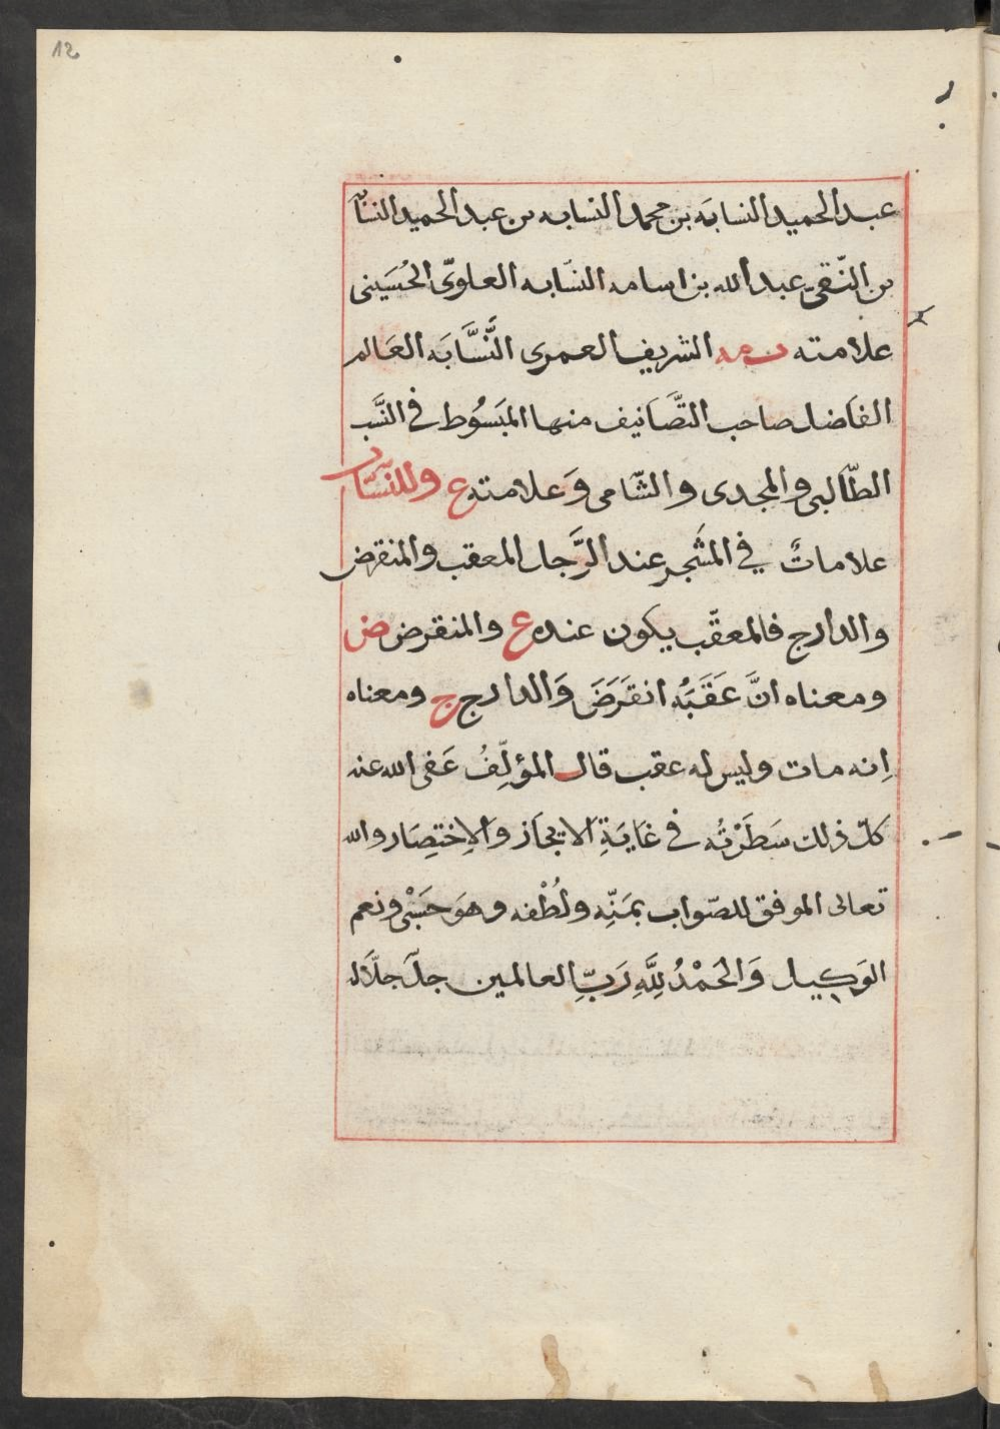 12
عبد الحميد النسابَه بن محمد النسابه بن عبد الحميد النسّا
بن النّقىّ عبد الله بن اسامه النسّابه العلوىّ الحُسَينى
علامته الشريف العمرى النَّسَّابَه العَالم
الفَاضل صاحب التَّصَانيف منها المبَسُوط فى النسَّب
الطّالبى والمجدى والشّامى وَعلامته ع وللنسّاب
علاماتٌ في المشَجر عند الرَّجل المعقب والمنقرض
والدارج فالمعقّب يكون عنده ع والمنقرض ض
ومعناه انَّ عَقَبَهُ انقَرَضَ وَالدارج ج ومعناه
اِنه مات وليس له عقب قال المؤلّفُ عَفى الله عنه
كلّ ذلك سَطَرْتُه في غَايَةِ الايجَاز والاِختِصَار والله
تعالى الموفق للصّواب بمَنِّه ولُطْفه وهوَ حَسَبْى ونعم
الوَكيل وَالحَمْدُ لِلَّهِ رَبِّ العالمين جلّ جلَاله